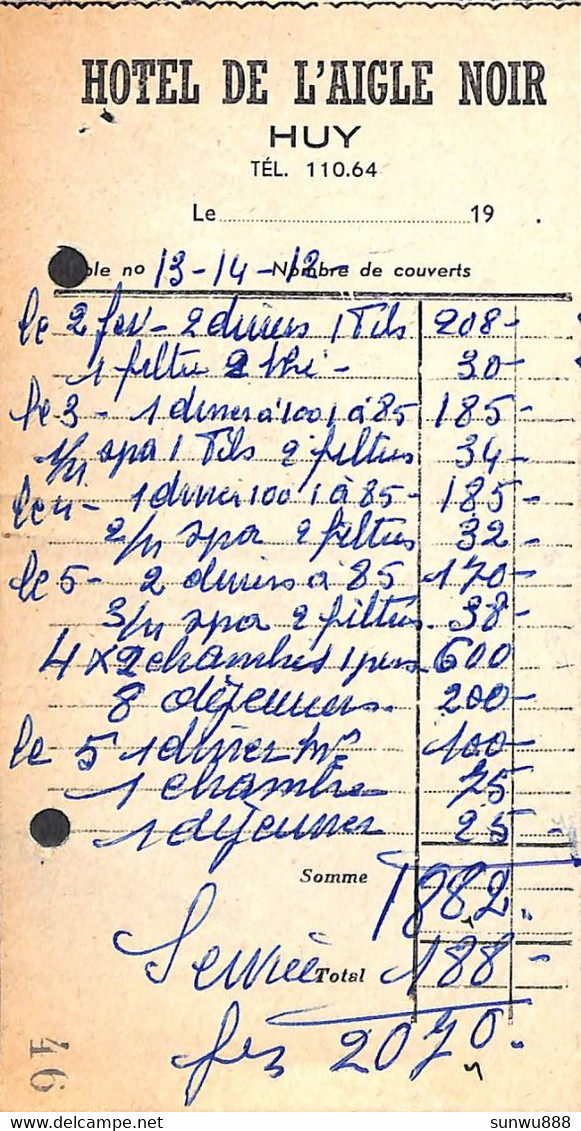 HOTEL DE L'AIGLE NOIR
HUY
TÉL. 110.64
Le 19 .
ble no 13-14-12- Nombre de couverts
le 2 fev - 2 diners 1 Tils 208-
1 filtre 2 thé - 30-
le 3 - 1 diner à 100 1 à 85 185-
1/4 spa 1 Tils 2 filtres 34-
le 4 - 1 diner 100 1 à 85- 185-
2/4 spa 2 filtres 32-
le 5- 2 diners à 85 170-
3/4 spa 2 filtres 38-
4 x 2 chambres 1 pers 600
8 déjeuners. 200-
le 5 1 diner 100-
1 chambre 75
1 déjeuner 25-
Somme 1882.
Service Total 188-
frs 2070.
46
sunwu888